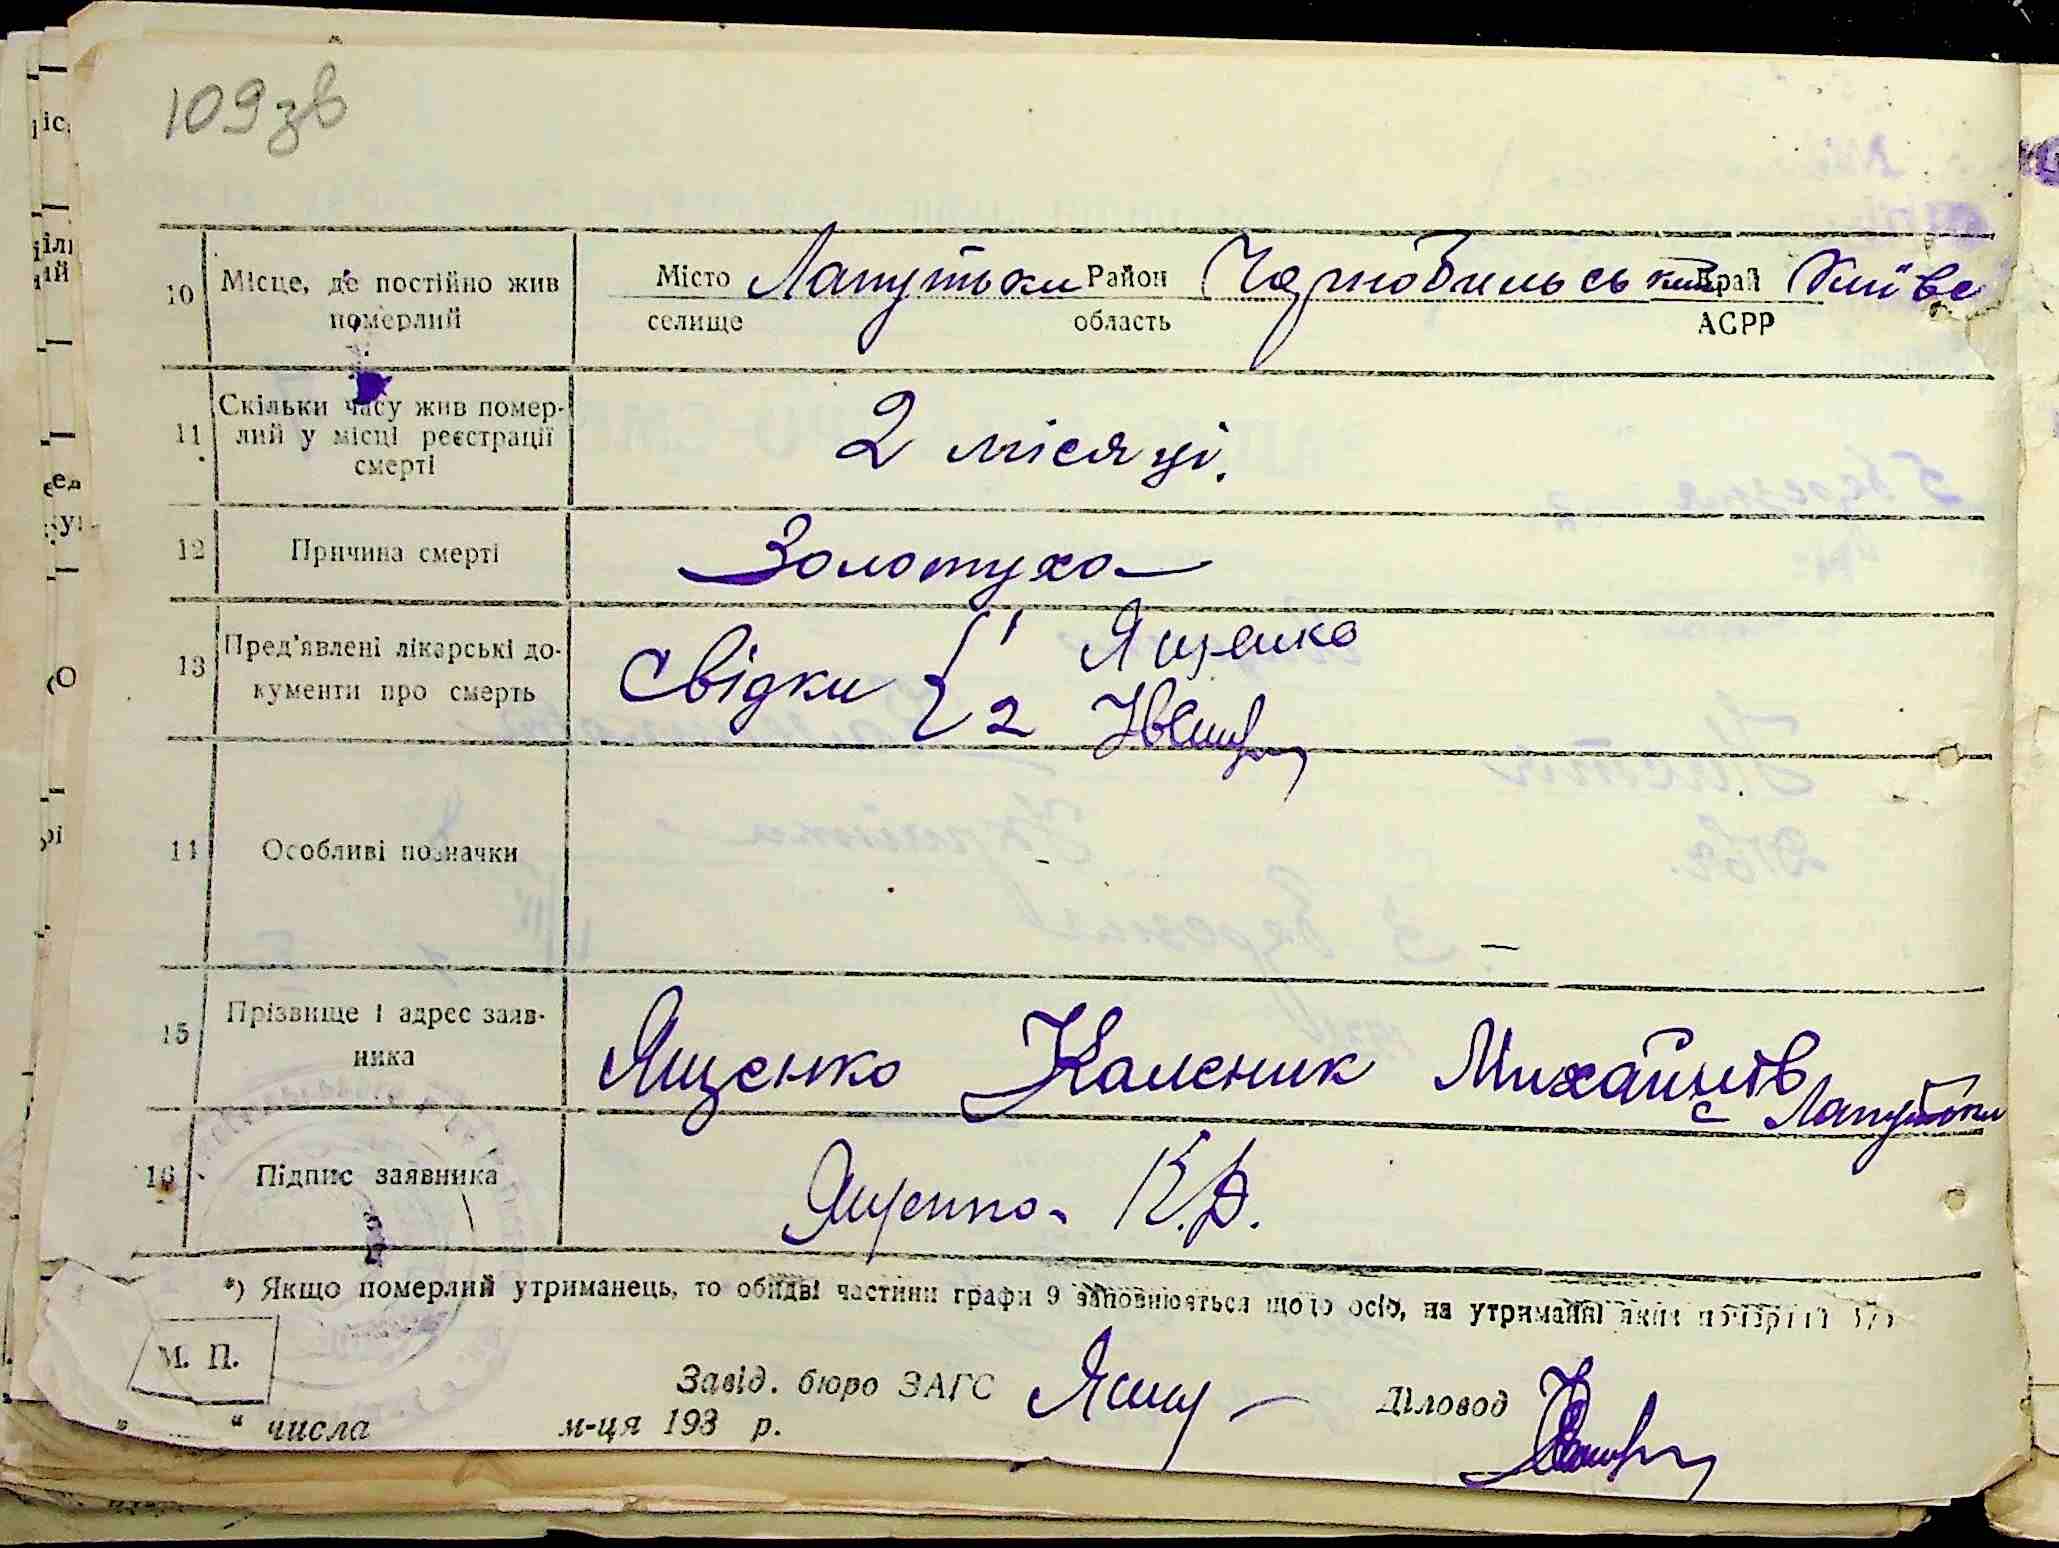 109зв
10 Місце, де постійно жив померлий
Місто Лапутьки Район Чорнобильський Край Київс
селище область АСРР
11 Скільки часу жив помер-
лий у місці реєстрації
смерті
2 місяці.
12 Причина смерті Золотуха
13 Пред'явлені лікарські до-
кументи про смерть
Свідки { 1 Ященко
2
14 Особливі позначки —
15 Прізвище і адрес заяв-
ника
Ященко Каленик Михайлов
с Лапутьки
16 Підпис заявника Ященко К.
*) Якщо померлий утриманець, то обидві частини графи 9 заповнюються щодо осіб, на утриманні яких
М. П.
Завід. бюро ЗАГС Діловод
„ “ числа м-ця 193 р.